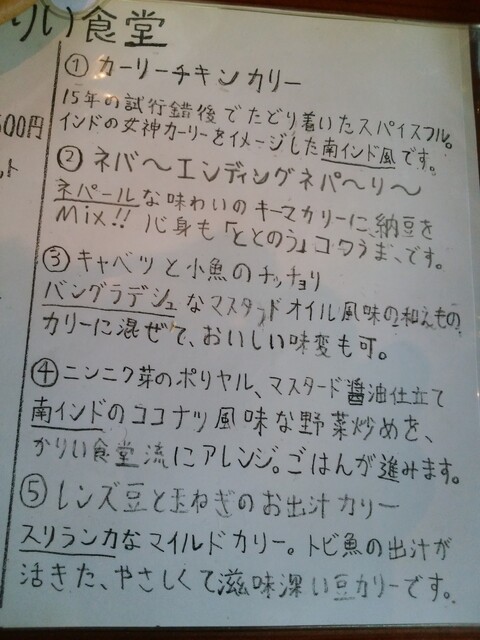 りい食堂
① カーリーチキンカリー
15年の試行錯後でたどり着いたスパイスフル。
インドの女神カーリーをイメージした南インド風です。
500円
② ネバ〜エンディングネパ〜リ〜
ネパールな味わいのキーマカリーに、納豆を
Mix!! 心身も「ととのう」コクうま、です。
③ キャベツと小魚のチッチョリ
バングラデシュなマスタードオイル風味の和えもの
カリーに混ぜて、おいしい味変も可。
④ ニンニク芽のポリヤル、マスタード醤油仕立て
南インドのココナツ風味な野菜炒めを、
かりい食堂流にアレンジ。ごはんが進みます。
⑤ レンズ豆と玉ねぎのお出汁カリー
スリランカなマイルドカリー。トビ魚の出汁が
活きた、やさしくて滋味深い豆カリーです。